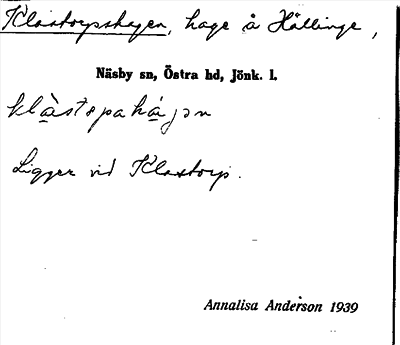 Klastorpshagen, hage å Hällinge,
Näsby sn, Östra hd, Jönk. l.
Ligger vid Klastorp.
Annalisa Anderson 1939